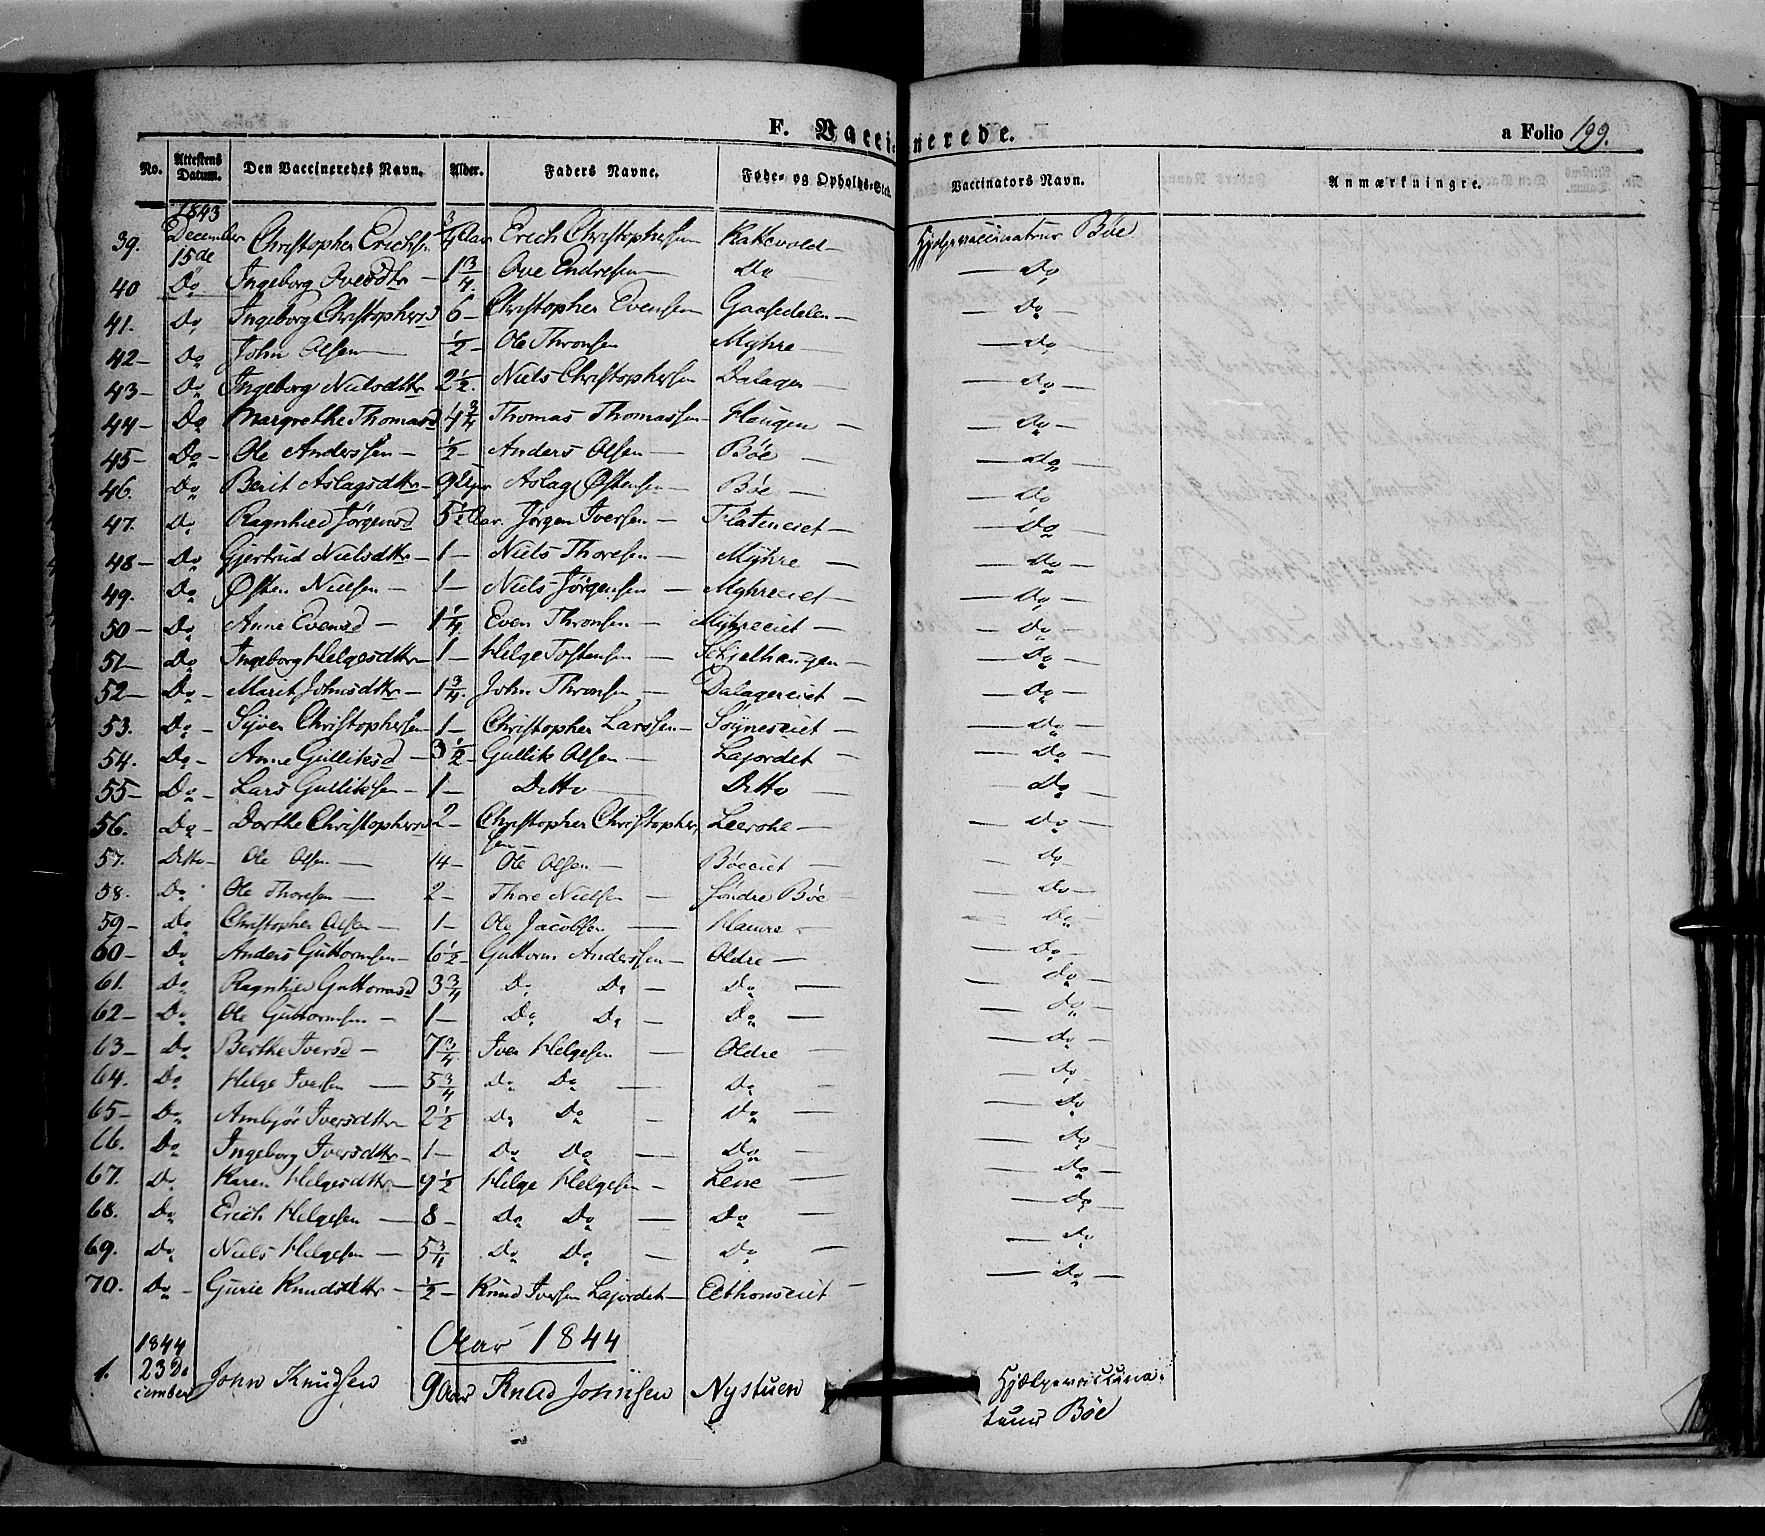 F. Vaccinerede. a Folio 199.
No. Attestens Datum. Den Vaccineredes Navn. Alder. Faders Navne. Føde- og Opholds-Sted. Vaccinators Navn. Anmærkninger.
1843
39. December 15de Christopher Erichsen 3/4 Aar Erich Christophersen Kattevold Hjelpevaccinateur Böe
40 Do Ingeborg Ovesdtr 1 3/4 Ove Endresen Do Do
41. Do Ingeborg Christophersd 6 Christopher Evensen Gaasedelen Do
42 Do John Olsen 1/2 Ole Thronsen Myhre Do
43 Do Ingeborg Nielsdtr 2 1/2 Niels Christophersen Dalagen Do
44 Do Margrethe Thomasd 4 3/4 Thomas Thomassen Haugen Do
45 Do Ole Anderssen 1/2 Anders Olsen Böe Do
46. Do Berit Aslagsdtr 9 Aslag Østensen Böe Do
47. Do Ragnhild Jørgensd 5 1/2 Aar Jørgen Iversen Flateneiet Do
48 Do Gjertrud Nielsdtr 1 Niels Thoresen Myhre Do
49. Do Østen Nielsen 1 Niels Jørgensen Myhreeiet Do
50 Do Anne Evensd 1 1/4 Even Thronsen Myhreeiet Do
51 Do Ingeborg Helgesdtr 1 Helge Tostensen Skjelhaugen Do
52 Do Marit Johnsdtr 1 3/4 John Thronsen Dalagereiet Do
53. Do Syver Christophersen 1 Christopher Larssen Söyneseiet Do
54. Do Anne Gulliksd 3 1/2 Gullik Olsen Lajordet Do
55 Do Lars Gulliksen 1 Ditto Ditto Do
56. Do Dorthe Christophersd 2 Christopher Christophersen Leerohe Do
57. Ditto Ole Olsen 14 Ole Olsen Böeeiet Do
58. Do Ole Thoresen 2 Thore Nielsen Søndre Böe Do
59 Do Christopher Olsen 1 Ole Jacobsen Haure Do
60 Do Anders Guttormsen 6 1/2 Guttorm Anderssen Oldre Do
61. Do Ragnhild Guttormsd 3 3/4 Do Do Do Do
62 Do Ole Guttormsen 1 Do Do Do Do
63 Do Berthe Iversd 7 3/4 Iver Helgesen Oldre Do
64. Do Helge Iversen 5 3/4 Do Do Do Do
65 Do Ambjør Iversdtr 2 1/2 Do Do Do Do
66. Do Ingeborg Iversdtr 1 Do Do Do Do
67. Do Karen Helgesdtr 9 1/2 Helge Helgesen Lene Do
68. Do Erich Helgesen 8 Do Do Do Do
69. Do Niels Helgesen 5 3/4 Do Do Do Do
70. Do Gurie Knudsdtr 1/2 Knud Iversen Lajordet Do
Aar 1844
1. 1844 23 December John Knudsen 9 Aar Knud Johnsen Nystuen Hjælpevaccinateur Böe